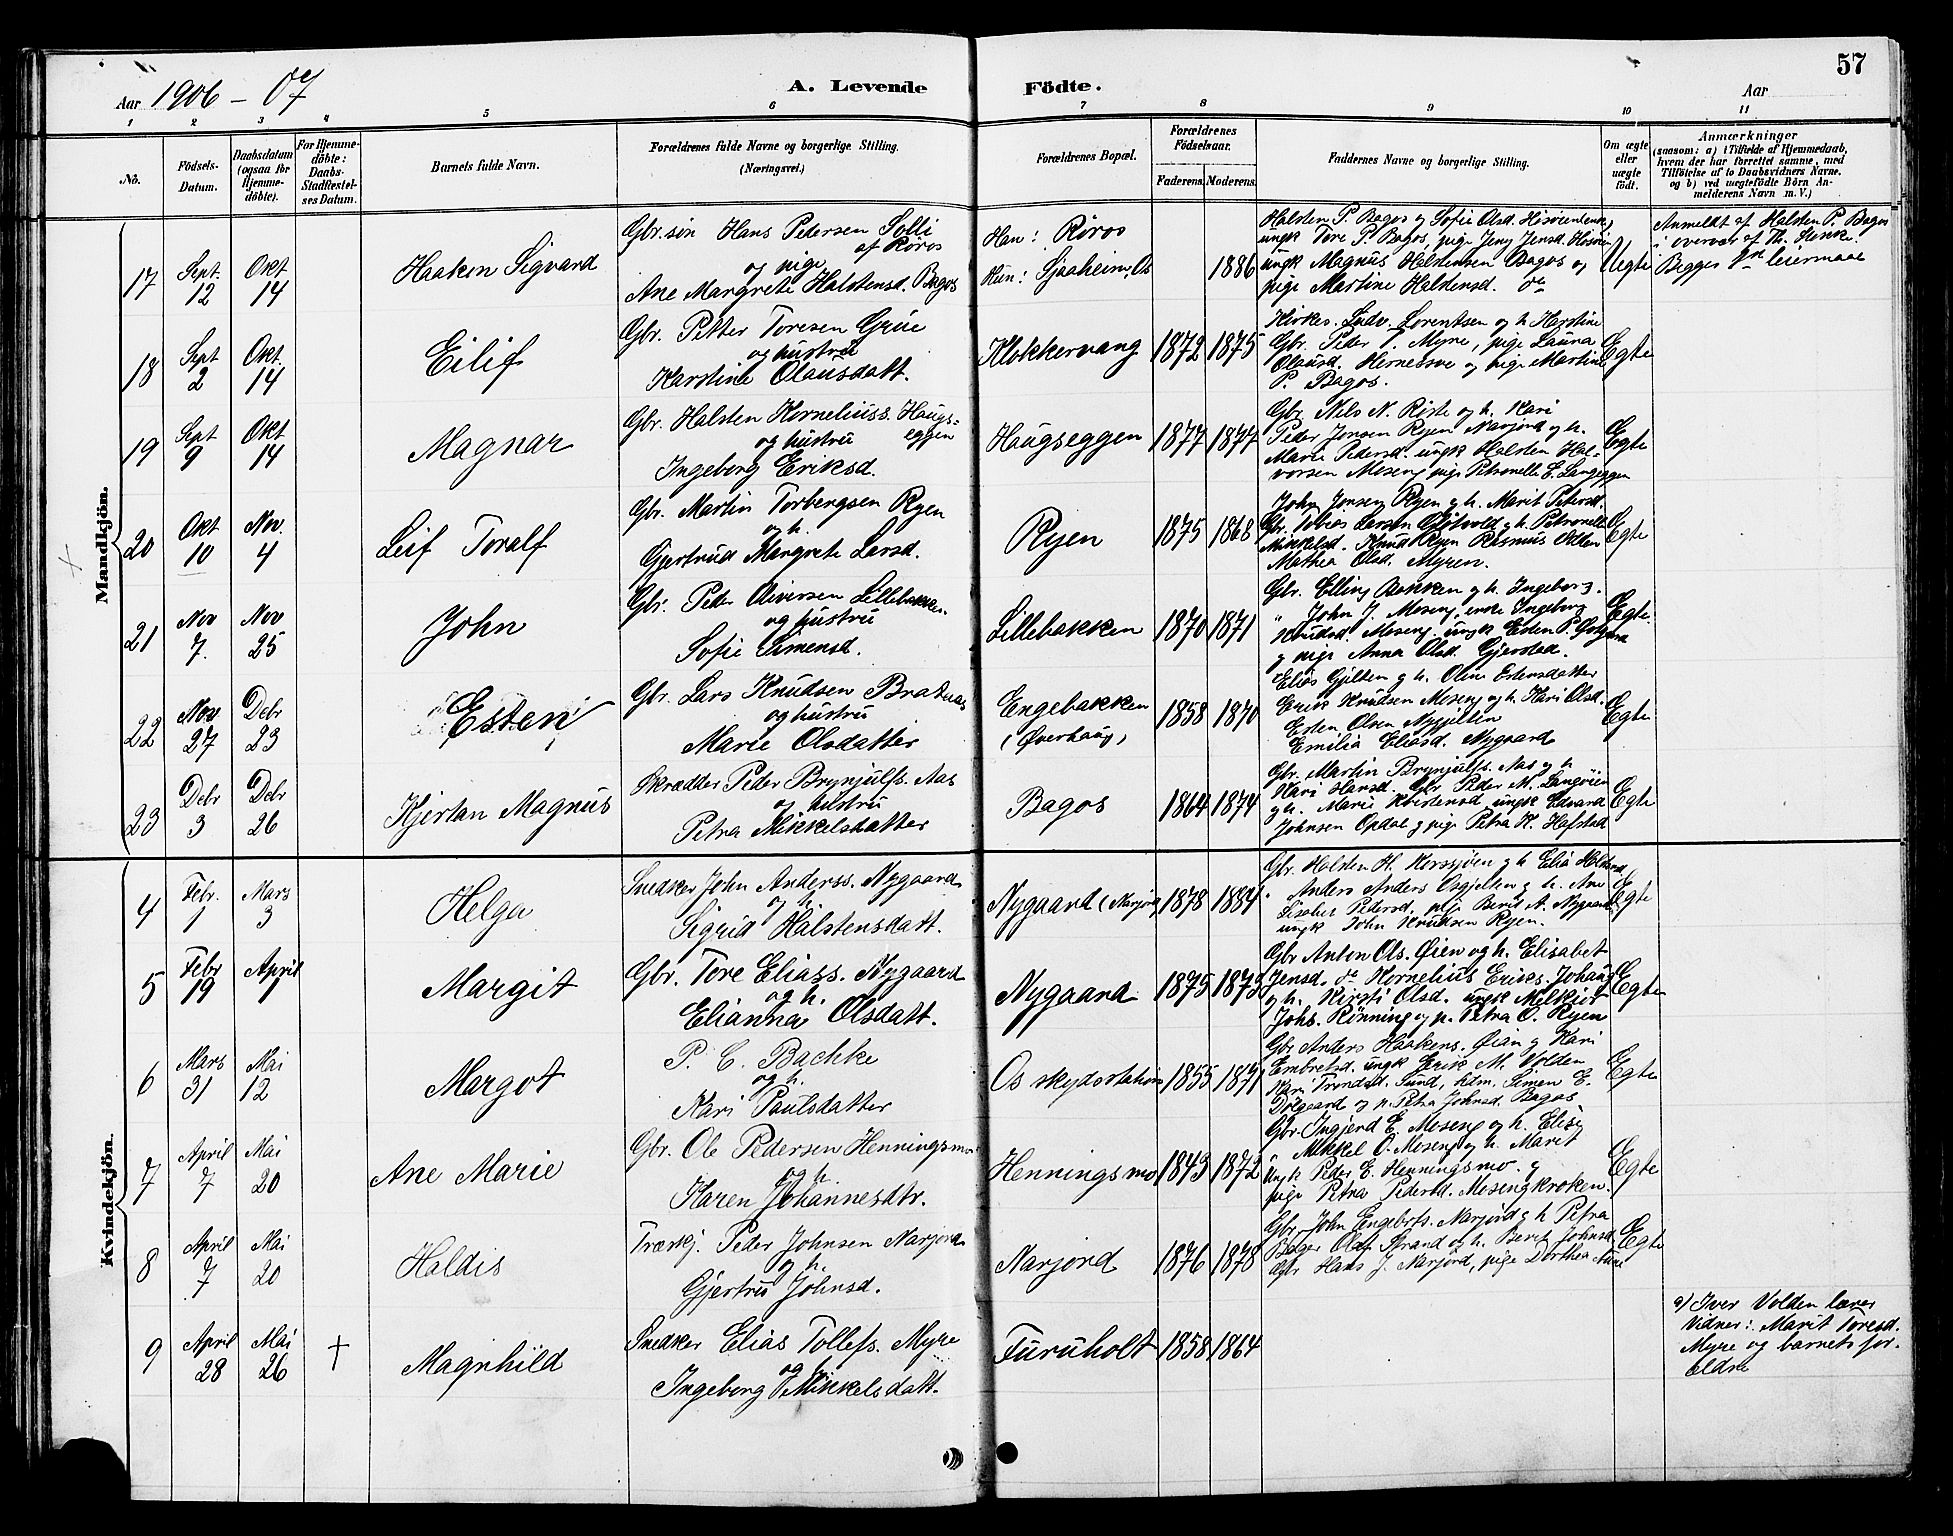 57
Aar 1906 - 07
A. Levende Födte.
Aar
1 2 3 4 5 6 7 8 9 10 11
No.
Födsels-Datum.
Daabsdatum (ogsaa for Hjemme-döbte).
For Hjemme-döbte: Daabs-Stadfæstel-ses Datum.
Barnets fulde Navn.
Forældrenes fulde Navne og borgerlige Stilling.
(Næringsvei.)
Forældrenes Bopæl.
Forældrenes Födselsaar.
Faderens. Moderens.
Faddernes Navne og borgerlige Stilling.
Om ægte eller uægte födt.
Anmærkninger
(saasom: a) i Tilfælde af Hjemmedaab,
hvem der har forrettet samme, med
Tilföielse af to Daabsvidners Navne,
og b) ved uægtefödte Börn An-
melderens Navn m. V.)
Mandkjön.
17
Sept. 12
Okt 14
Haaken Sigvard
Gbr. sön Hans Pedersen Solli
af Röros
og pige
Ane Margrete Halstensd. Bagos
Han: Röros
Hun: Sjaaheim, Os
1886
Halsten P. Bagos og Sofie Olsd.
ungk Tore P. Bagos, pige Jeny Jensd.
ungk Magnus Halstensen Bagos og
pige Martine Halstensd. do
Uegte
Anmeldt af Halsten P. Bagos
i overvær af Th.
Begges 1ste leiermaal
18
Sept 2
Okt. 14
Eilif
Gbr. Petter Toresen Grue
og hustru
Karstine Olausdatt.
Klokkervang
1872 1875
Kirkes. Ludv. Lorentsen og h. Karstine
Gbr. Peder T. Myre, pige Laura
Olausd. og pige Martine
P. Bagos.
Egte
19
Sept 9
Okt 14
Magnar
Gbr. Halsten Korneliuss. Haugs-
eggen
og hustru
Ingeborg Eriksd.
Haugseggen
1877 1877
Gbr. Nils N. Riste og h. Kari
Peder Jonsen Ryen Narjord og h.
Marie Pedersd. ungk Halsten Hal-
vorsen Moseng pige Petronelle E. Langeggen
Egte
20
Okt 10
Nov. 4
Leif Toralf
Gbr. Martin Torbergsen Ryen
og h.
Gjertrud Margrete Larsd.
Ryen
1875 1868
John Jonsen Ryen og h. Marit Petersd.
Gbr. Tobias Larsen og h. Petronelle
Mikkelsd. Knud Ryen Rasmus Volden
Mathea Olsd. Myren.
Egte
21
Nov 7.
Nov 25
John
Gbr. Peder Oliversen Lillebakken.
og hustru
Sofie Simensd.
Lillebakken
1870 1871
Gbr. Elling Bakken og h. Ingeborg.
" John J. Moseng, enke Ingeborg
Knudsd. Moseng. ungk Esten P.
og pige Anna Olsd. Gjersted.
Egte.
22
Nov 27
Debr 23
Esten
Gbr. Lars Knudsen Bratnas
og hustru
Marie Olsdatter
Engebakken
(Øverhaug)
1858 1870
Elias Gjilten og h. Oline Estensdatter
Erik Knudsen Moseng og h. Kari Olsd.
Esten Olsen Nygjilten
Emilia Eliasd. Nygaard
Egte
23
Debr 3
Debr 26
Kjertan Magnus
Skrædder Peder Brynjulfs. Aas
og hustru
Petra Mikkelsdatter
Bagos
1864 1874
Gbr. Martin Brynjulfs. Aas og h
Kari Hansd. Gbr Peder M. Langöien
og h. Marie Kristensd ungk Edvard
Johnsen Opdal og pige Petra H. Hafstad
Egte
Kvindekjön.
4
Febr. 1
Mars 3
Helga
Snedker John Anderss. Nygaard
og h.
Sigrid Halstensdatt.
Nygaard (Narjord)
1878 1884
Gbr. Halsten H. Korssjöen og h. Elia
Anders Anders Osgjelten og h. Ane
Lisabet Pedersd. pige Berit A. Nygaard
ungk John Knudsen Ryen.
Egte
5
Febr 19
April 1
Margit
Gbr. Tore Eliass. Nygaard
og h.
Elianna Olsdatt.
Nygaard
1875 1873
Gbr Anton Ols. Øien og h. Elisabet
Jensd. do Kornelius Eriks. Johaug
og h. Kirsti Olsd. ungk Melkior
Johs. Rönning og p. Petra O. Ryen
Egte
6
Mars 31
Mai 12
Margot
P. C. Bachke
og h.
Kari Paulsdatter
Os skydsstation
1855 1871
Gbr Anders Haakens. Øian og Kari
Embretsd. ungk Erik M. Volden
Kari Trondsd. Sund, hdm. Simen E.
Dölgaard og p. Petra Johnsd. Bagos
Egte
7
April 7
Mai 20
Ane Marie
Gbr. Ole Pedersen Henningsmo
og h.
Karen Johannesdtr.
Henningsmo
1843 1872
Gbr. Ingjerd E. Moseng og h. Elisę
" Mikkel O. Moseng og h. Marit
ungk Peder E. Henningsmo. og
pige Petra Pedersd. Mosengkroken.
Egte
8
April 7
Mai 20
Haldis
Træskj. Peder Johnsen Narjord
og h.
Gjertru Johnsd.
Narjord
1876 1878
Gbr. John Engebrts. Narjord og h Petra
Bager Olaf Strand og h. Berit Johnsd
Gbr Hans J. Narjord, pige Dorthea
Egte
9
April 28
Mai 26
†
Magnhild
Snedker Elias Tollefs. Myre
og h.
Ingeborg Mikkelsdatt.
Furuholt
1858 1864
a) Iver Volden lærer
Vidner: Marit Toresd.
Myre og barnets for-
ældre